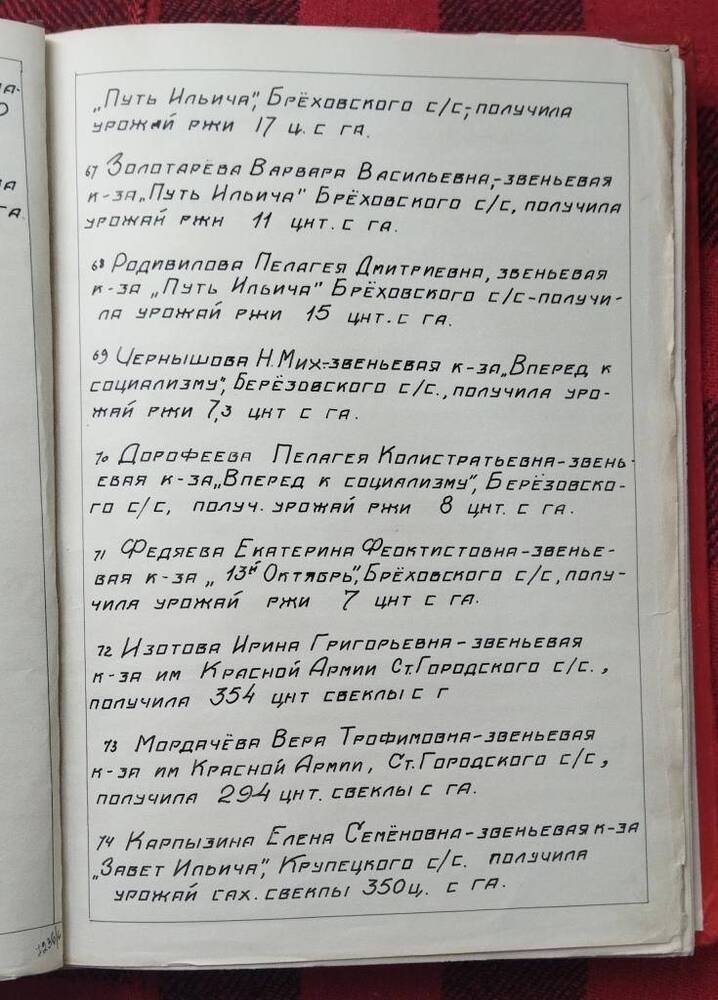 „Путь Ильича", Брёховского с/с,-получила
урожай ржи 17 ц. с га.
67 Золотарёва Варвара Васильевна,-звеньевая
к-за „Путь Ильича" Брёховского с/с, получила
урожай ржи 11 цнт. с га.
68 Родивилова Пелагея Дмитриевна, звеньевая
к-за „Путь Ильича" Брёховского с/с-получи-
ла урожай ржи 15 цнт. с га.
69 Чернышова Н. Мих-звеньевая к-за „Вперед к
социализму", Берёзовского с/с., получила уро-
жай ржи 7,3 цнт с га.
70 Дорофеева Пелагея Колистратьевна-звень-
евая к-за „Вперед к социализму", Берёзовско-
го с/с, получ. урожай ржи 8 цнт. с га.
71 Федяева Екатерина Феоктистовна-звенье-
вая к-за „13й Октябрь", Брёховского с/с, полу-
чила урожай ржи 7 цнт с га.
72 Изотова Ирина Григорьевна-звеньевая
к-за им Красной Армии Ст. Городского с/с.,
получила 354 цнт свеклы с г
73 Мордачёва Вера Трофимовна-звеньевая
к-за им Красной Армии, Ст. Городского с/с,
получила 294 цнт. свеклы с га.
74 Карпызина Елена Семёновна-звеньевая к-за
„Завет Ильича", Крупецкого с/с. получила
урожай сах. свеклы 350 ц. с га.